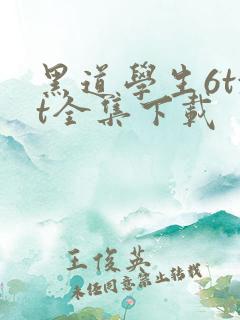 黑道學生6tx
t全集下載
王俊英
未经同意禁止转载